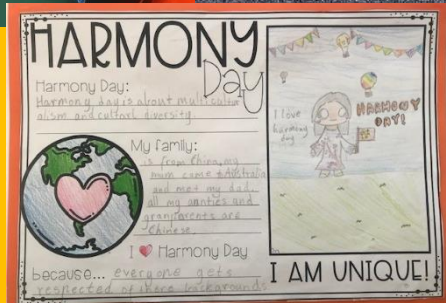 HARMONY
Day
Harmony Day:
Harmony day is about multicultur
alism and cultural diversity
My family:
is from China, my
mum come to Australia
and met my dad.
all my annties and
granparents are
Chinese.
I ❤ Harmony Day
because... everyone gets
respected of there backgrounds
I love
harmony
day
HARMONY
DAY!
I AM UNIQUE!